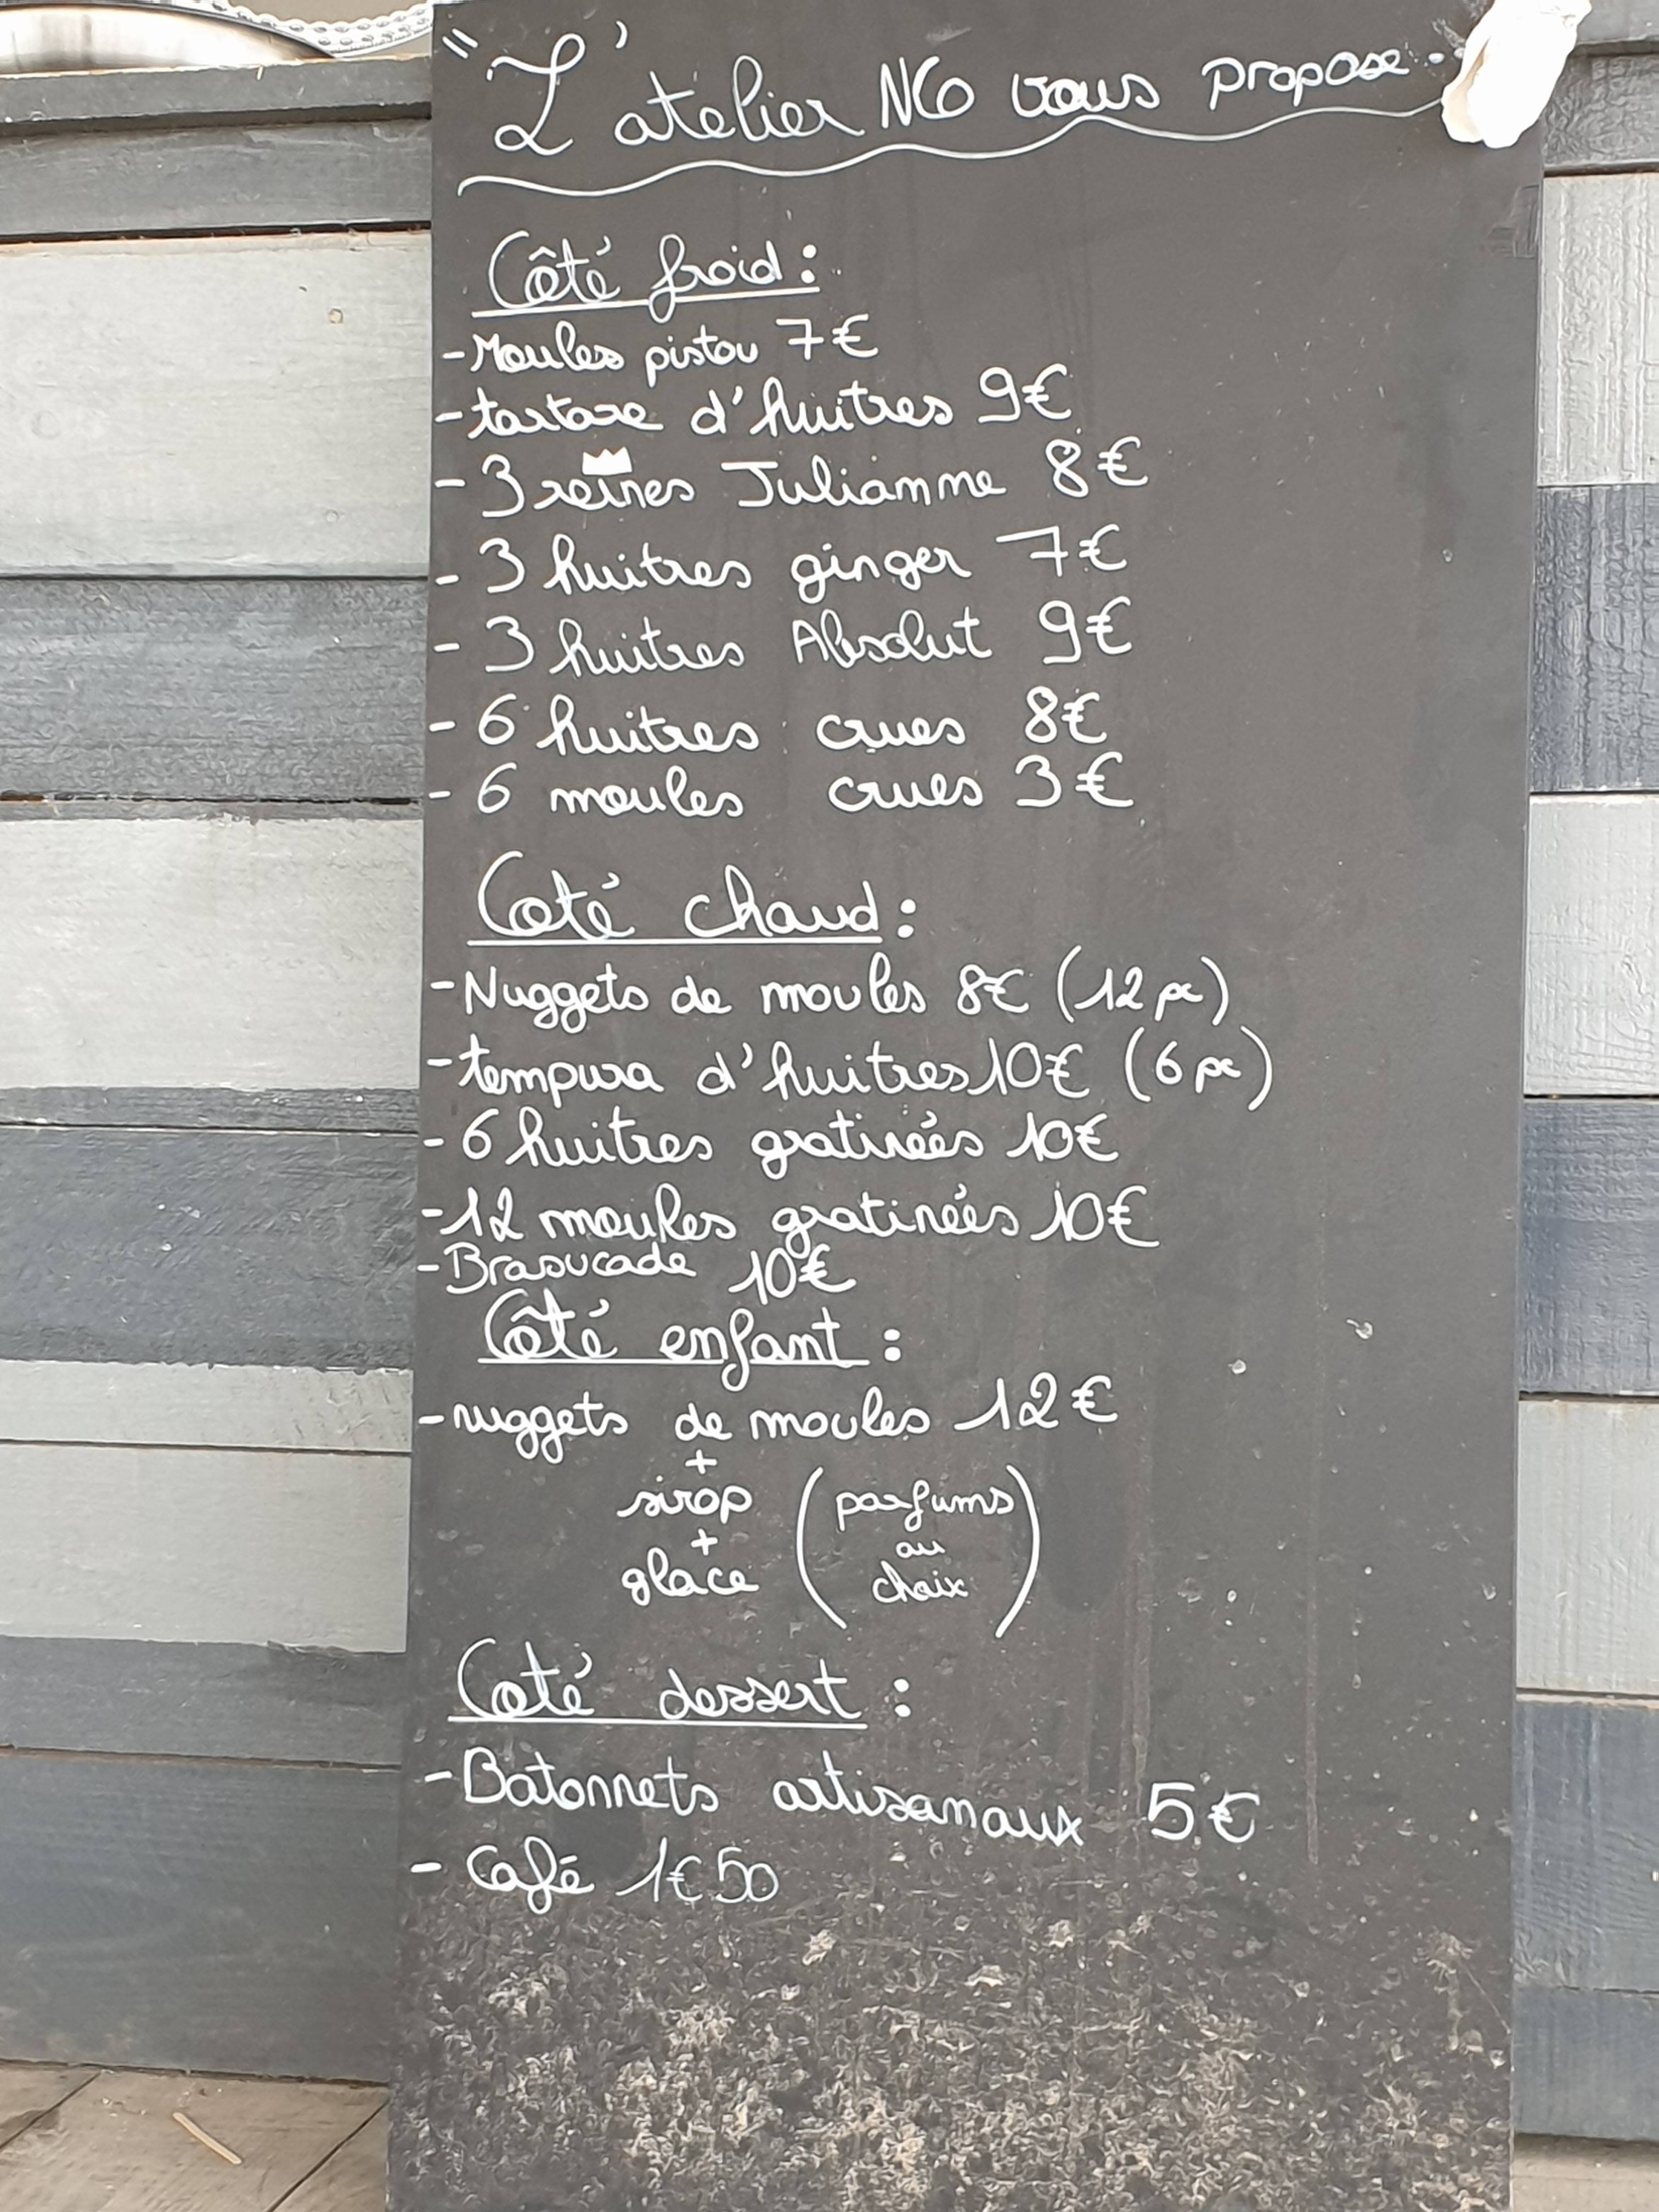 "L'atelier NCO vous propose..
Côté froid :
- Moules pistou 7€
- tartare d'huitres 9€
- 3 reines Julianne 8€
- 3 huitres ginger 7€
- 3 huitres Absolut 9€
- 6 huitres crues 8€
- 6 moules crues 3€
Coté chaud :
- Nuggets de moules 8€ (12 pc)
- tempura d'huitres 10€ (6 pc)
- 6 huitres gratinées 10€
- 12 moules gratinées 10€
- Brasucade 10€
Côté enfant :
- nuggets de moules 12€
+
sirop
+
glace
(parfums
au
choix)
Coté dessert :
- Batonnets artisanaux 5€
- Café 1€50